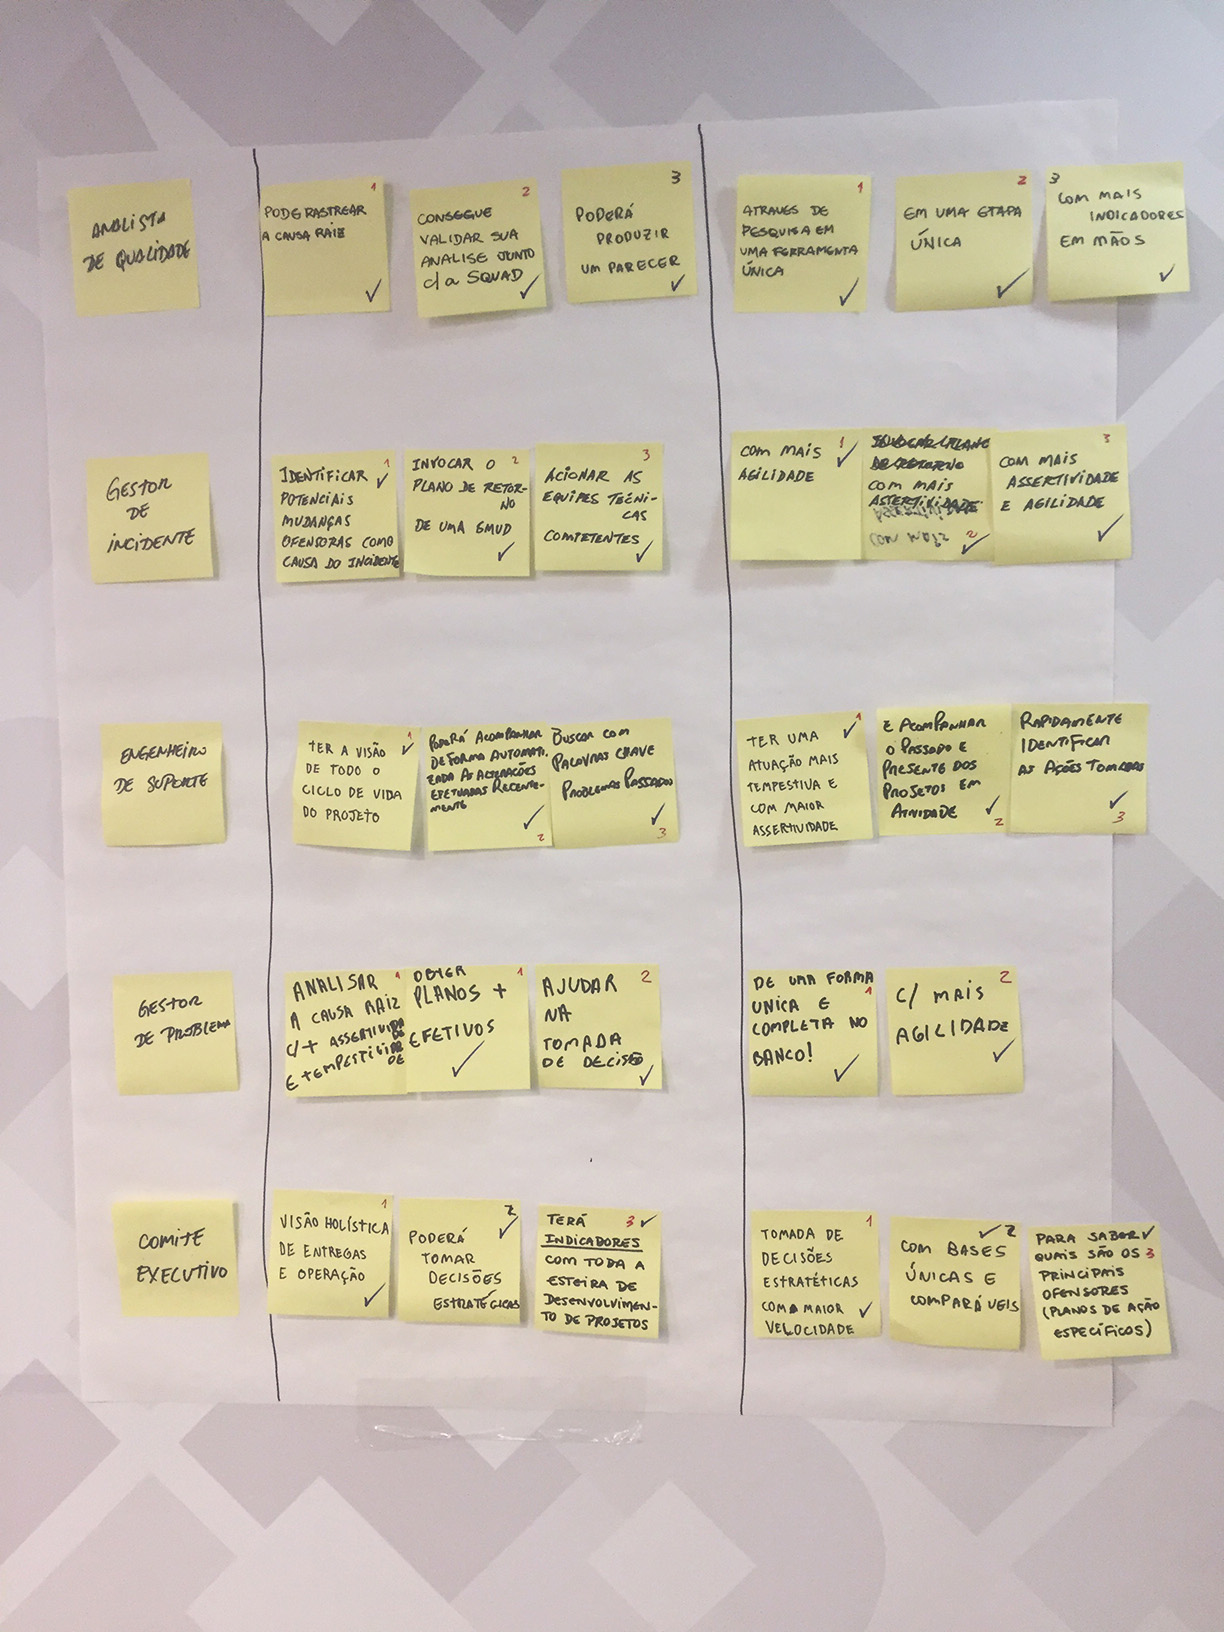 ANALISTA
DE QUALIDADE
1
PODE RASTREAR
A CAUSA RAIZ
2
CONSEGUE
VALIDAR SUA
ANALISE JUNTO
c/a SQUAD
3
PODERÁ
PRODUZIR
UM PARECER
1
ATRAVES DE
PESQUISA EM
UMA FERRAMENTA
ÚNICA
2
EM UMA ETAPA
ÚNICA
3
COM MAIS
INDICADORES
EM MÃOS
GESTOR
DE
INCIDENTE
1
IDENTIFICAR
POTENCIAIS
MUDANÇAS
OFENSORAS COMO
CAUSA DO INCIDENTE
2
INVOCAR O
PLANO DE RETOR-
NO
DE UMA GMUD
3
ACIONAR AS
EQUIPES TECNI-
CAS
COMPETENTES
1
COM MAIS
AGILIDADE
COM MAIS
ASSERTIVIDADE
COM MAIS 2
3
COM MAIS
ASSERTIVIDADE
E AGILIDADE
ENGENHEIRO
DE SUPORTE
1
TER A VISÃO
DE TODO O
CICLO DE VIDA
DO PROJETO
PODERÁ ACOMPANHAR
DE FORMA AUTOMATI-
ZADA AS ALTERAÇÕES
EFETUADAS RECENTE-
MENTE
2
BUSCAR COM
PALAVRAS CHAVE
PROBLEMAS PASSADOS
3
1
TER UMA
ATUAÇÃO MAIS
TEMPESTIVA E
COM MAIOR
ASSERTIVIDADE
E ACOMPANHAR
O PASSADO E
PRESENTE DOS
PROJETOS EM
ATIVIDADE
2
RAPIDAMENTE
IDENTIFICAR
AS AÇÕES TOMADAS
3
GESTOR
DE PROBLEMA
1
ANALISAR
A CAUSA RAIZ
C/+ ASSERTIVIDA
DE
E +TEMPESTIVIDA
DE
1
OBTER
PLANOS +
EFETIVOS
2
AJUDAR
NA
TOMADA
DE DECISÃO
DE UMA FORMA
1
UNICA E
COMPLETA NO
BANCO!
2
C/ MAIS
AGILIDADE
COMITE
EXECUTIVO
1
VISÃO HOLÍSTICA
DE ENTREGAS
E OPERAÇÃO
2
PODERÁ
TOMAR
DECISÕES
ESTRATÉGICAS
TERÁ 3
INDICADORES
COM TODA A
ESTEIRA DE
DESENVOLVIMEN-
TO DE PROJETOS
1
TOMADA DE
DECISÕES
ESTRATÉTICAS
COM A MAIOR
VELOCIDADE
2
COM BASES
ÚNICAS E
COMPARÁVEIS
PARA SABER
QUAIS SÃO OS 3
PRINCIPAIS
OFENSORES
(PLANOS DE AÇÃO
ESPECÍFICOS)